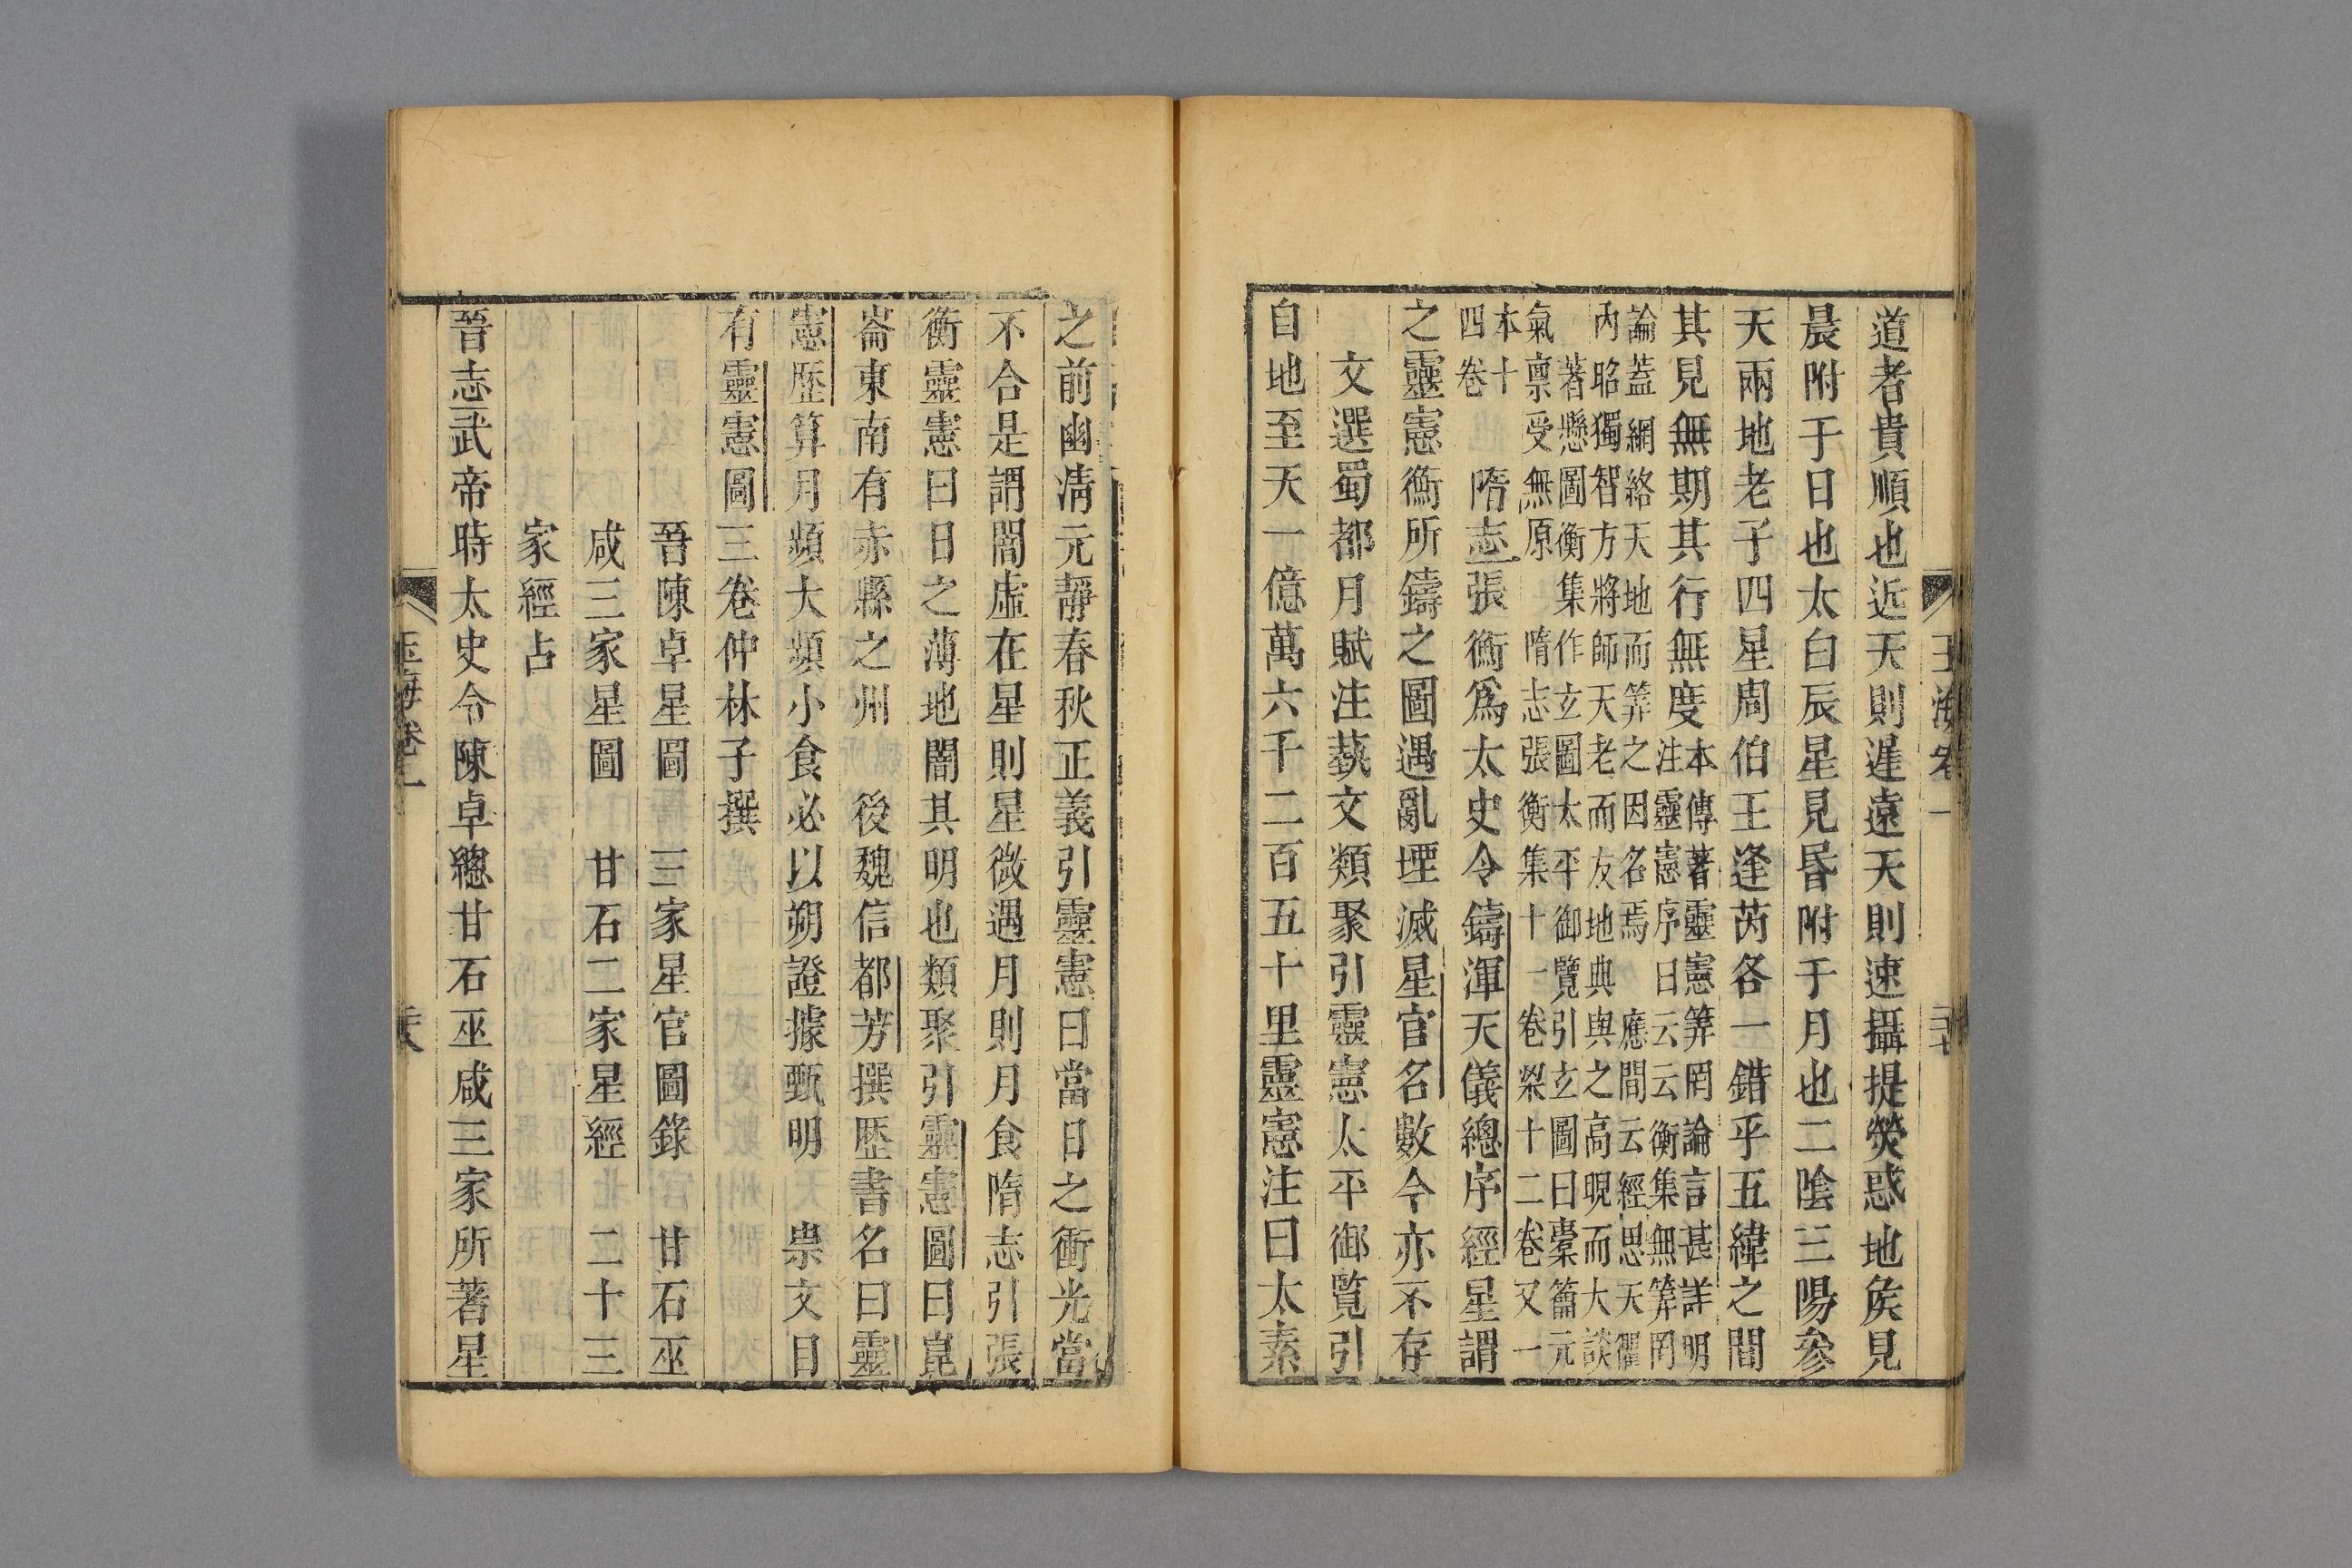 玉海卷一
道者貴順也近天則遲遠天則速攝提熒惑地矦見
晨附于日也太白辰星見昏附于月也二陰三陽參
天兩地老子四星周伯王逢芮各一錯乎五緯之間
其見無期其行無度本傳著靈憲筭罔論言甚詳明
注靈憲序曰云云衡集無筭罔
論蓋網絡天地而筭之因名焉應間云經思天衢
內昭獨智方將師天老而友地典與之高睨而大談
著懸圖衡集作玄圖太平御覽引玄圖曰橐籥元
氣稟受無原隋志張衡集十一卷梁十二卷又一
本十
四卷隋志張衡爲太史令鑄渾天儀總序經星謂
之靈憲衡所鑄之圖遇亂堙滅星官名數今亦不存
文選蜀都月賦注藝文類聚引靈憲太平御覽引
自地至天一億萬六千二百五十里靈憲注曰太素
之前幽淸元靜春秋正義引靈憲曰當日之衝光當
不合是謂闇虛在星則星微遇月則月食隋志引張
衡靈憲曰日之薄地闇其明也類聚引靈憲圖曰崑
崙東南有赤縣之州後魏信都芳撰歷書名曰靈
憲歷算月頻大頻小食必以朔證據甄明崇文目
有靈憲圖三卷仲林子撰
吾陳卓星圖三家星官圖錄甘石巫
咸三家星圖甘石二家星經二十三
家經占
晉志武帝時太史令陳卓總甘石巫咸三家所著星
玉海卷一